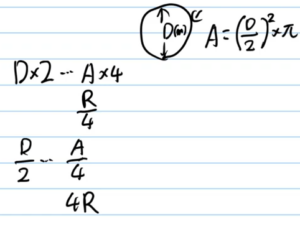 D(m) A=(D/2)²×π
D×2 --- A×4
R/4
D/2 --- A/4
4R